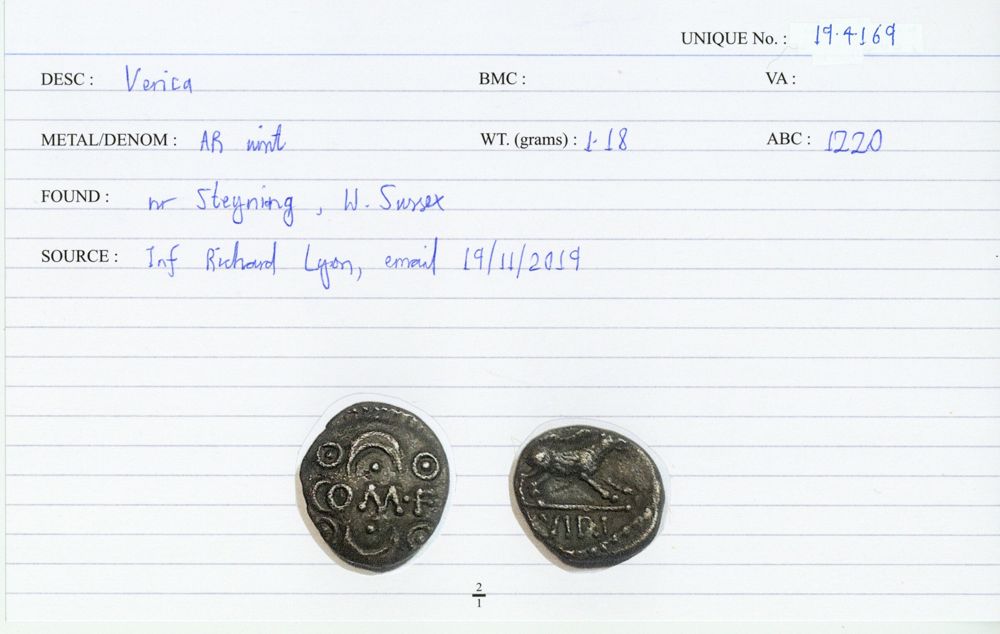 UNIQUE No. : 19.4169
DESC : Verica BMC : VA :
METAL/DENOM : AR unit WT. (grams) : 1.18 ABC : 1220
FOUND : nr Steyning, W. Sussex
SOURCE : Inf Richard Lyon, email 19/11/2019
COM·F
VIRI
2
1